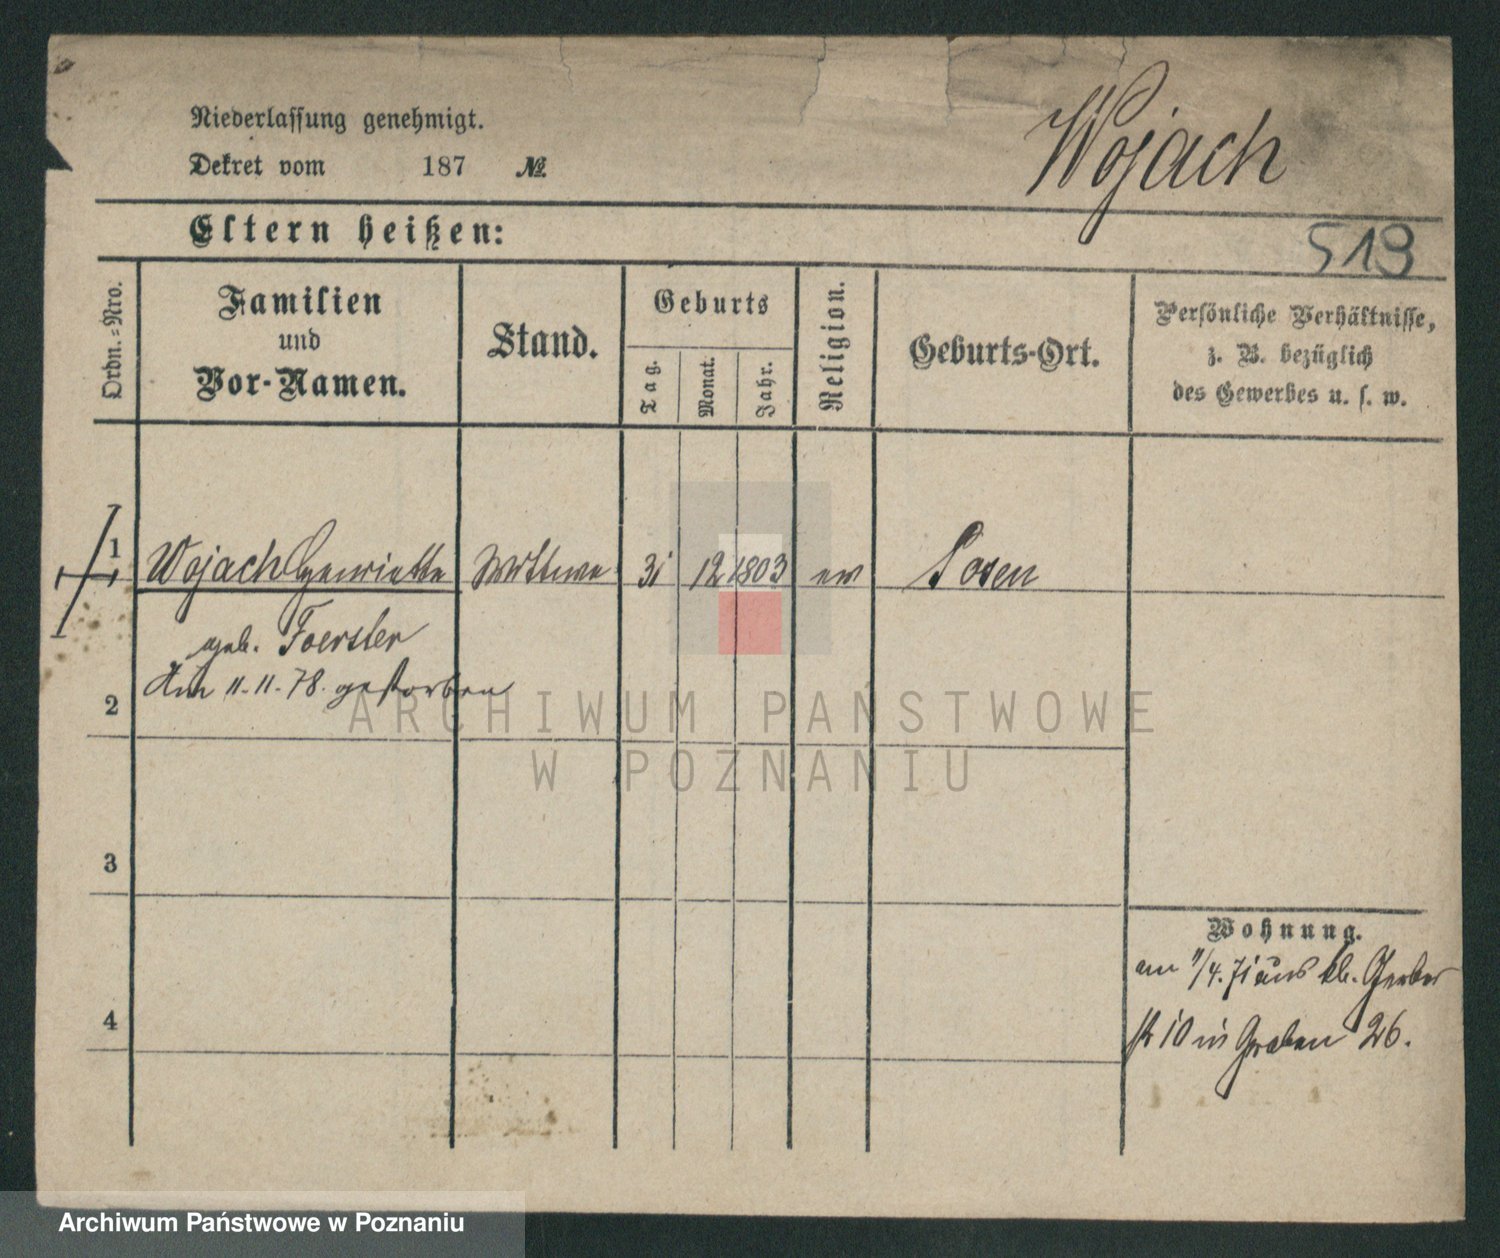 Niederlassung genehmigt.
Dekret vom 187 №
Wojach
Eltern heißen:
519
Ordn.=Nro.
Familien
und
Vor-Namen.
Stand.
Geburts
Tag.
Monat.
Jahr.
Religion.
Geburts-Ort.
Persönliche Verhältnisse,
z. B. bezüglich
des Gewerbes u. s. w.
1 Wojach Henriette Wittwe 31 12 1803 ev Posen
geb. Foerster
Am 11-11-78. gestorben
2
ARCHIWUM PAŃSTWOWE
W POZNANIU
3
Wohnung.
am 11/4. 71 aus kl. Gerber
str 10 in Graben 26.
4
Archiwum Państwowe w Poznaniu